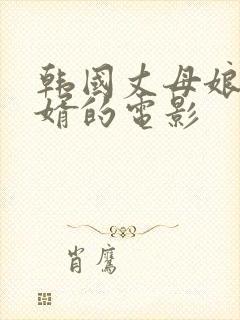 韩國丈母娘
婿的電影
肖鹰